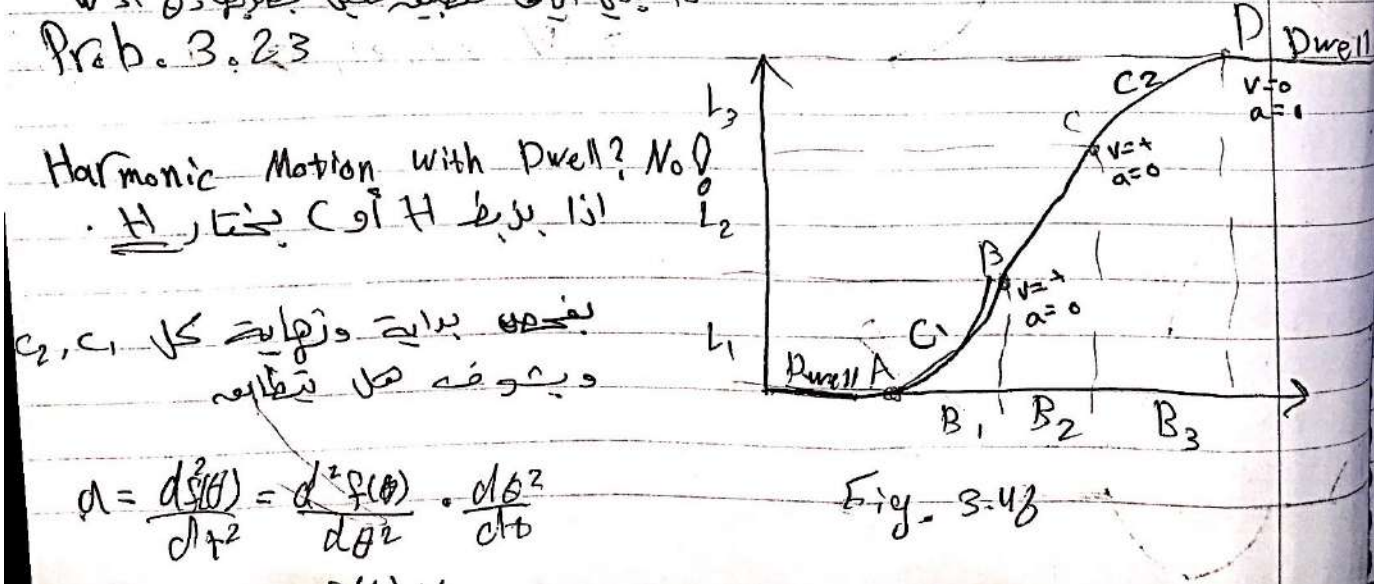 Prob. 3.23
Harmonic Motion with Dwell? No!
اذا بزبط H أو C بختار H.
بفحص بداية ونهاية كل C2, C1
ويشوف هل
a = d²f(θ)/dt² = d²f(θ)/dθ² . dθ²/dt
L3
L2
L1
Dwell A
C1
B
v=+
a=0
C
v=+
a=0
C2
D
Dwell
v=0
a=0
B1 B2 B3
Fig. 3.48